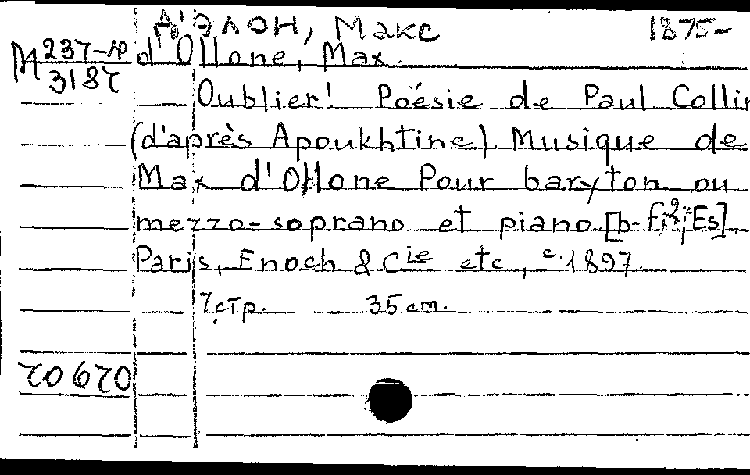 Д'ЭЛОН, Макс 1875-
М 237-№
3187
d'Ollone, Max.
Oublier! Poésie de Paul Collin
(d'après Apoukhtine). Musique de
Max d'Ollone Pour baryton ou
mezzo-soprano et piano.
Paris, Enoch & Cie etc, c. 1897.
7 стр. 35 cm.
70670